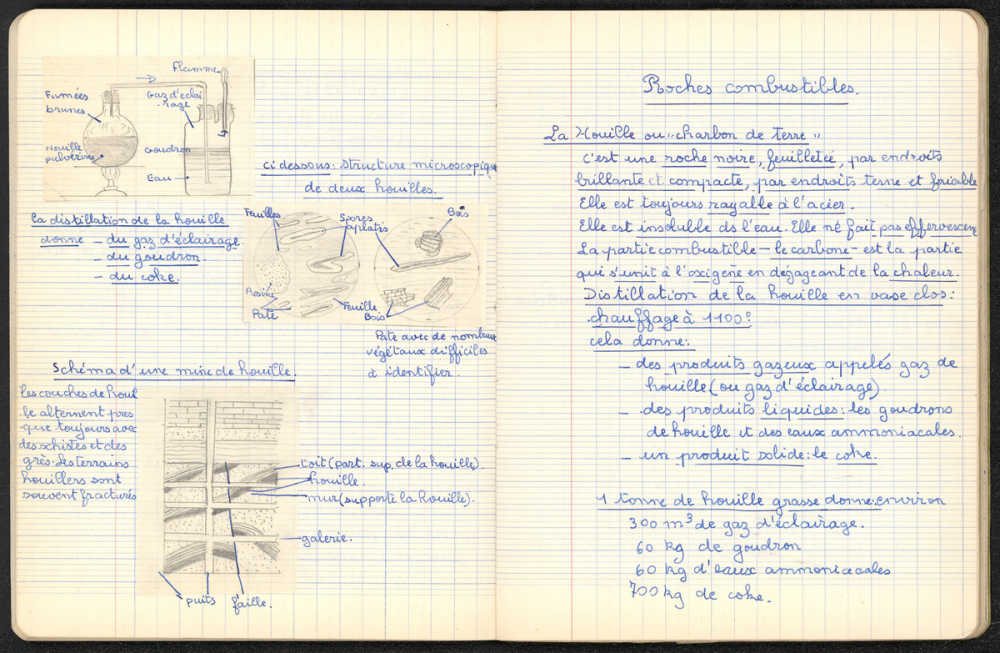 Flamme
Fumées
brunes
Gaz d'éclai
rage
Houille
pulvérisée
Goudron
Eau
ci dessous: Structure microscopique
de deux houilles.
la distillation de la houille
donne – du gaz d'éclairage
– du goudron.
– du coke.
Feuilles
Spores
aplaties
Bois
Résine
Pate
Feuille
Bois
Pate avec de nombreux
végétaux difficiles
à identifier.
Schéma d'une mine de houille.
les couches de houil
le alternent pres
que toujours avec
des schistes et des
grès. Les terrains
houillers sont
souvent fracturés
toit (part. sup. de la houille).
houille.
mur (supporte la houille).
galerie.
puits
faille.
Roches combustibles.
La Houille ou "charbon de terre"
C'est une roche noire, feuilletée, par endroits
brillante et compacte, par endroits terne et friable
Elle est toujours rayable à l'acier.
Elle est insoluble ds l'eau. Elle ne fait pas effervescence
La partie combustible – le carbone – est la partie
qui s'unit à l'oxigène en dégageant de la chaleur.
Distillation de la houille en vase clos:
chauffage à 1100°
cela donne:
– des produits gazeux appelés gaz de
houille (ou gaz d'éclairage).
– des produits liquides: les goudrons
de houille et des eaux ammoniacales.
– un produit solide: le coke.
1 tonne de houille grasse donne: environ
300 m³ de gaz d'éclairage.
60 kg de goudron
60 kg d'eaux ammoniacales
700 kg de coke.